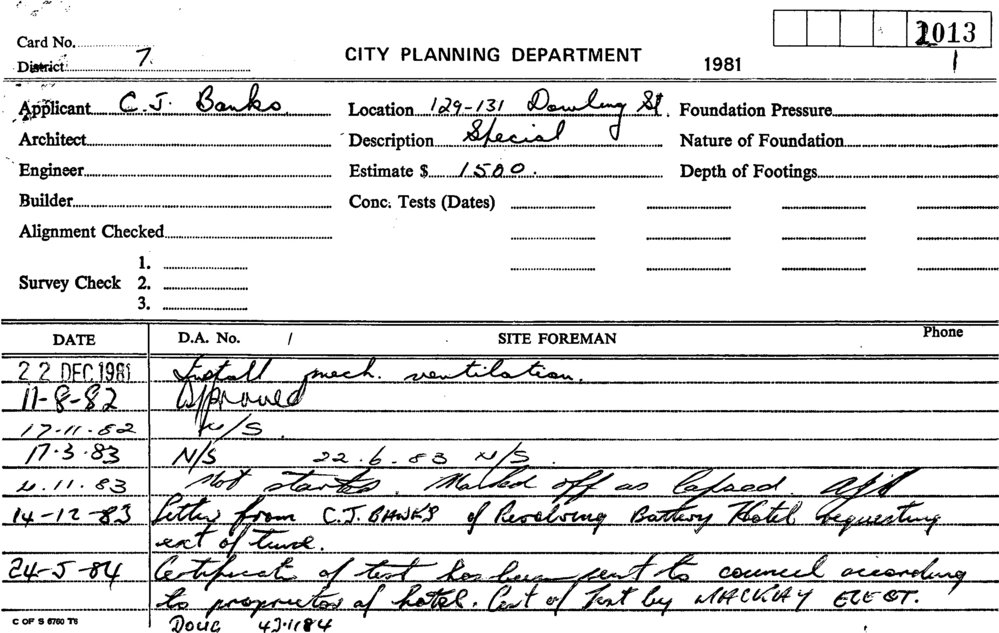 Card No.
2013
District 7.
CITY PLANNING DEPARTMENT
1981
1
Applicant C. J. Banks
Location 129-131 Dowling St.
Foundation Pressure
Architect
Description Special
Nature of Foundation
Engineer
Estimate $ 1500.
Depth of Footings
Builder
Conc. Tests (Dates)
Alignment Checked
Survey Check
1.
2.
3.
DATE
D.A. No. /
SITE FOREMAN
Phone
22 DEC 1981 Install mech. ventilation.
11-8-82 Approved
17-11-82 N/S.
17.3.83 N/S 22.6.83 N/S.
4.11.83 Not started. Marked off as lapsed.
14-12-83 Letter from C.J. BANKS of Revolving Battery Hotel requesting
ext of time.
24-5-84 Certificate of test has been sent to council according
to proprietor of hotel. Cert of Test by MACKAY ELECT.
C OF S 6760 T6
DOUG